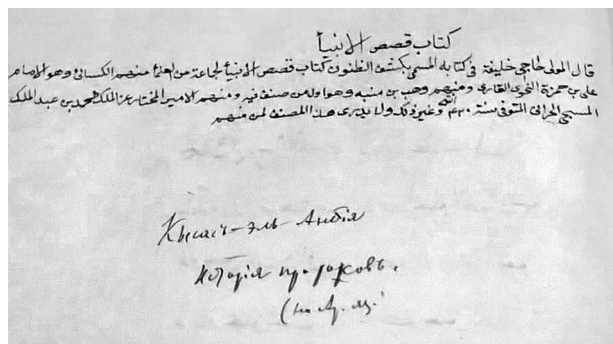 كتاب قصص الانبيأ
قال المولى حاجى خليفة فى كتابه المسمى بكشف الظنون كتاب قصص الانبيأ لجماعة من العلمأ منهم الكسائى وهو الامام
على بن حمزة النحوى القارى ومنهم وهب بن منبه وهو اول من صنف فيه ومنهم الامير المختار عز الملك محمد بن عبد الملك
المسبحى الحرانى المتوفى سنة ٤٢٠ وغير ذلك ولا يدرى هذا المصنف لمن منهم
Кысасъ-эль-Анбія
Исторія пророковъ.
(на Ар. яз.